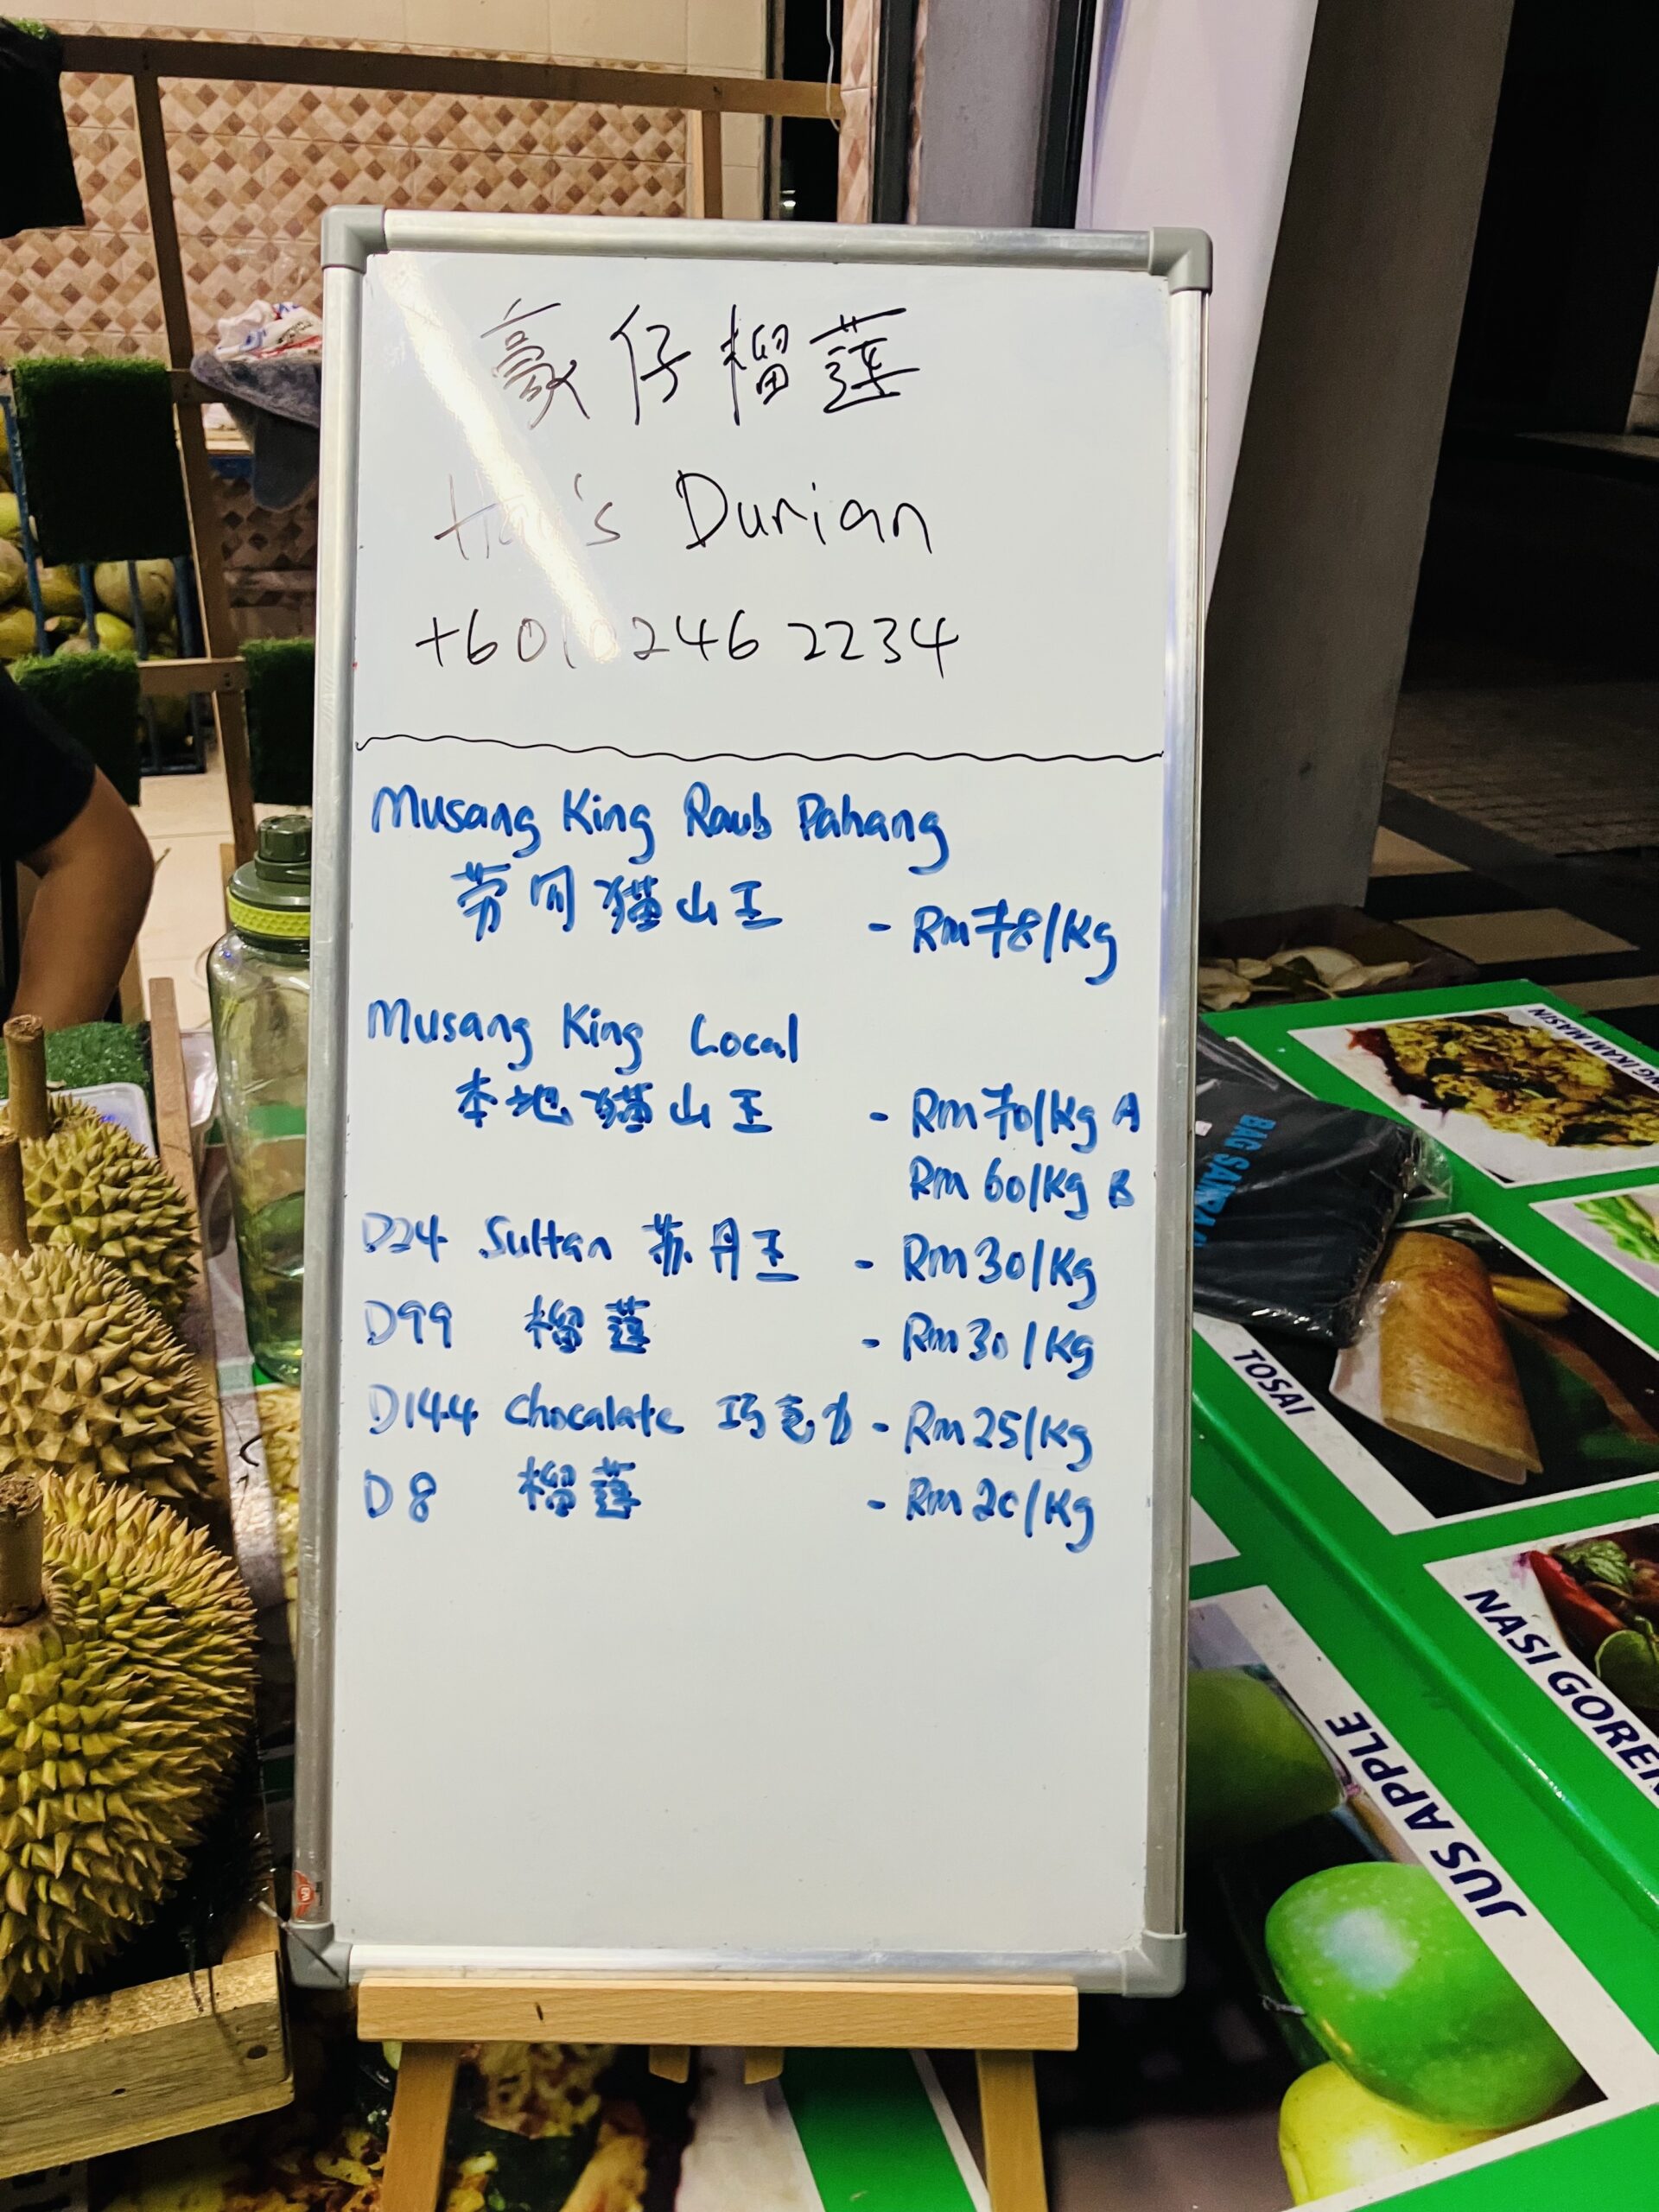 豪仔榴莲
Durian
246 2234
Musang King Raub Pahang
劳勿猫山王 - Rm78/Kg
Musang King Local
本地猫山王 - Rm70/Kg A
Rm60/Kg B
D24 Sultan 苏丹王 - Rm30/Kg
D99 榴莲 - Rm30/Kg
D144 Chocalate 巧克力 - Rm25/Kg
D8 榴莲 - Rm20/Kg
IKAN MASIN
BAG
TOSAI
NASI GOREN
JUS APPLE